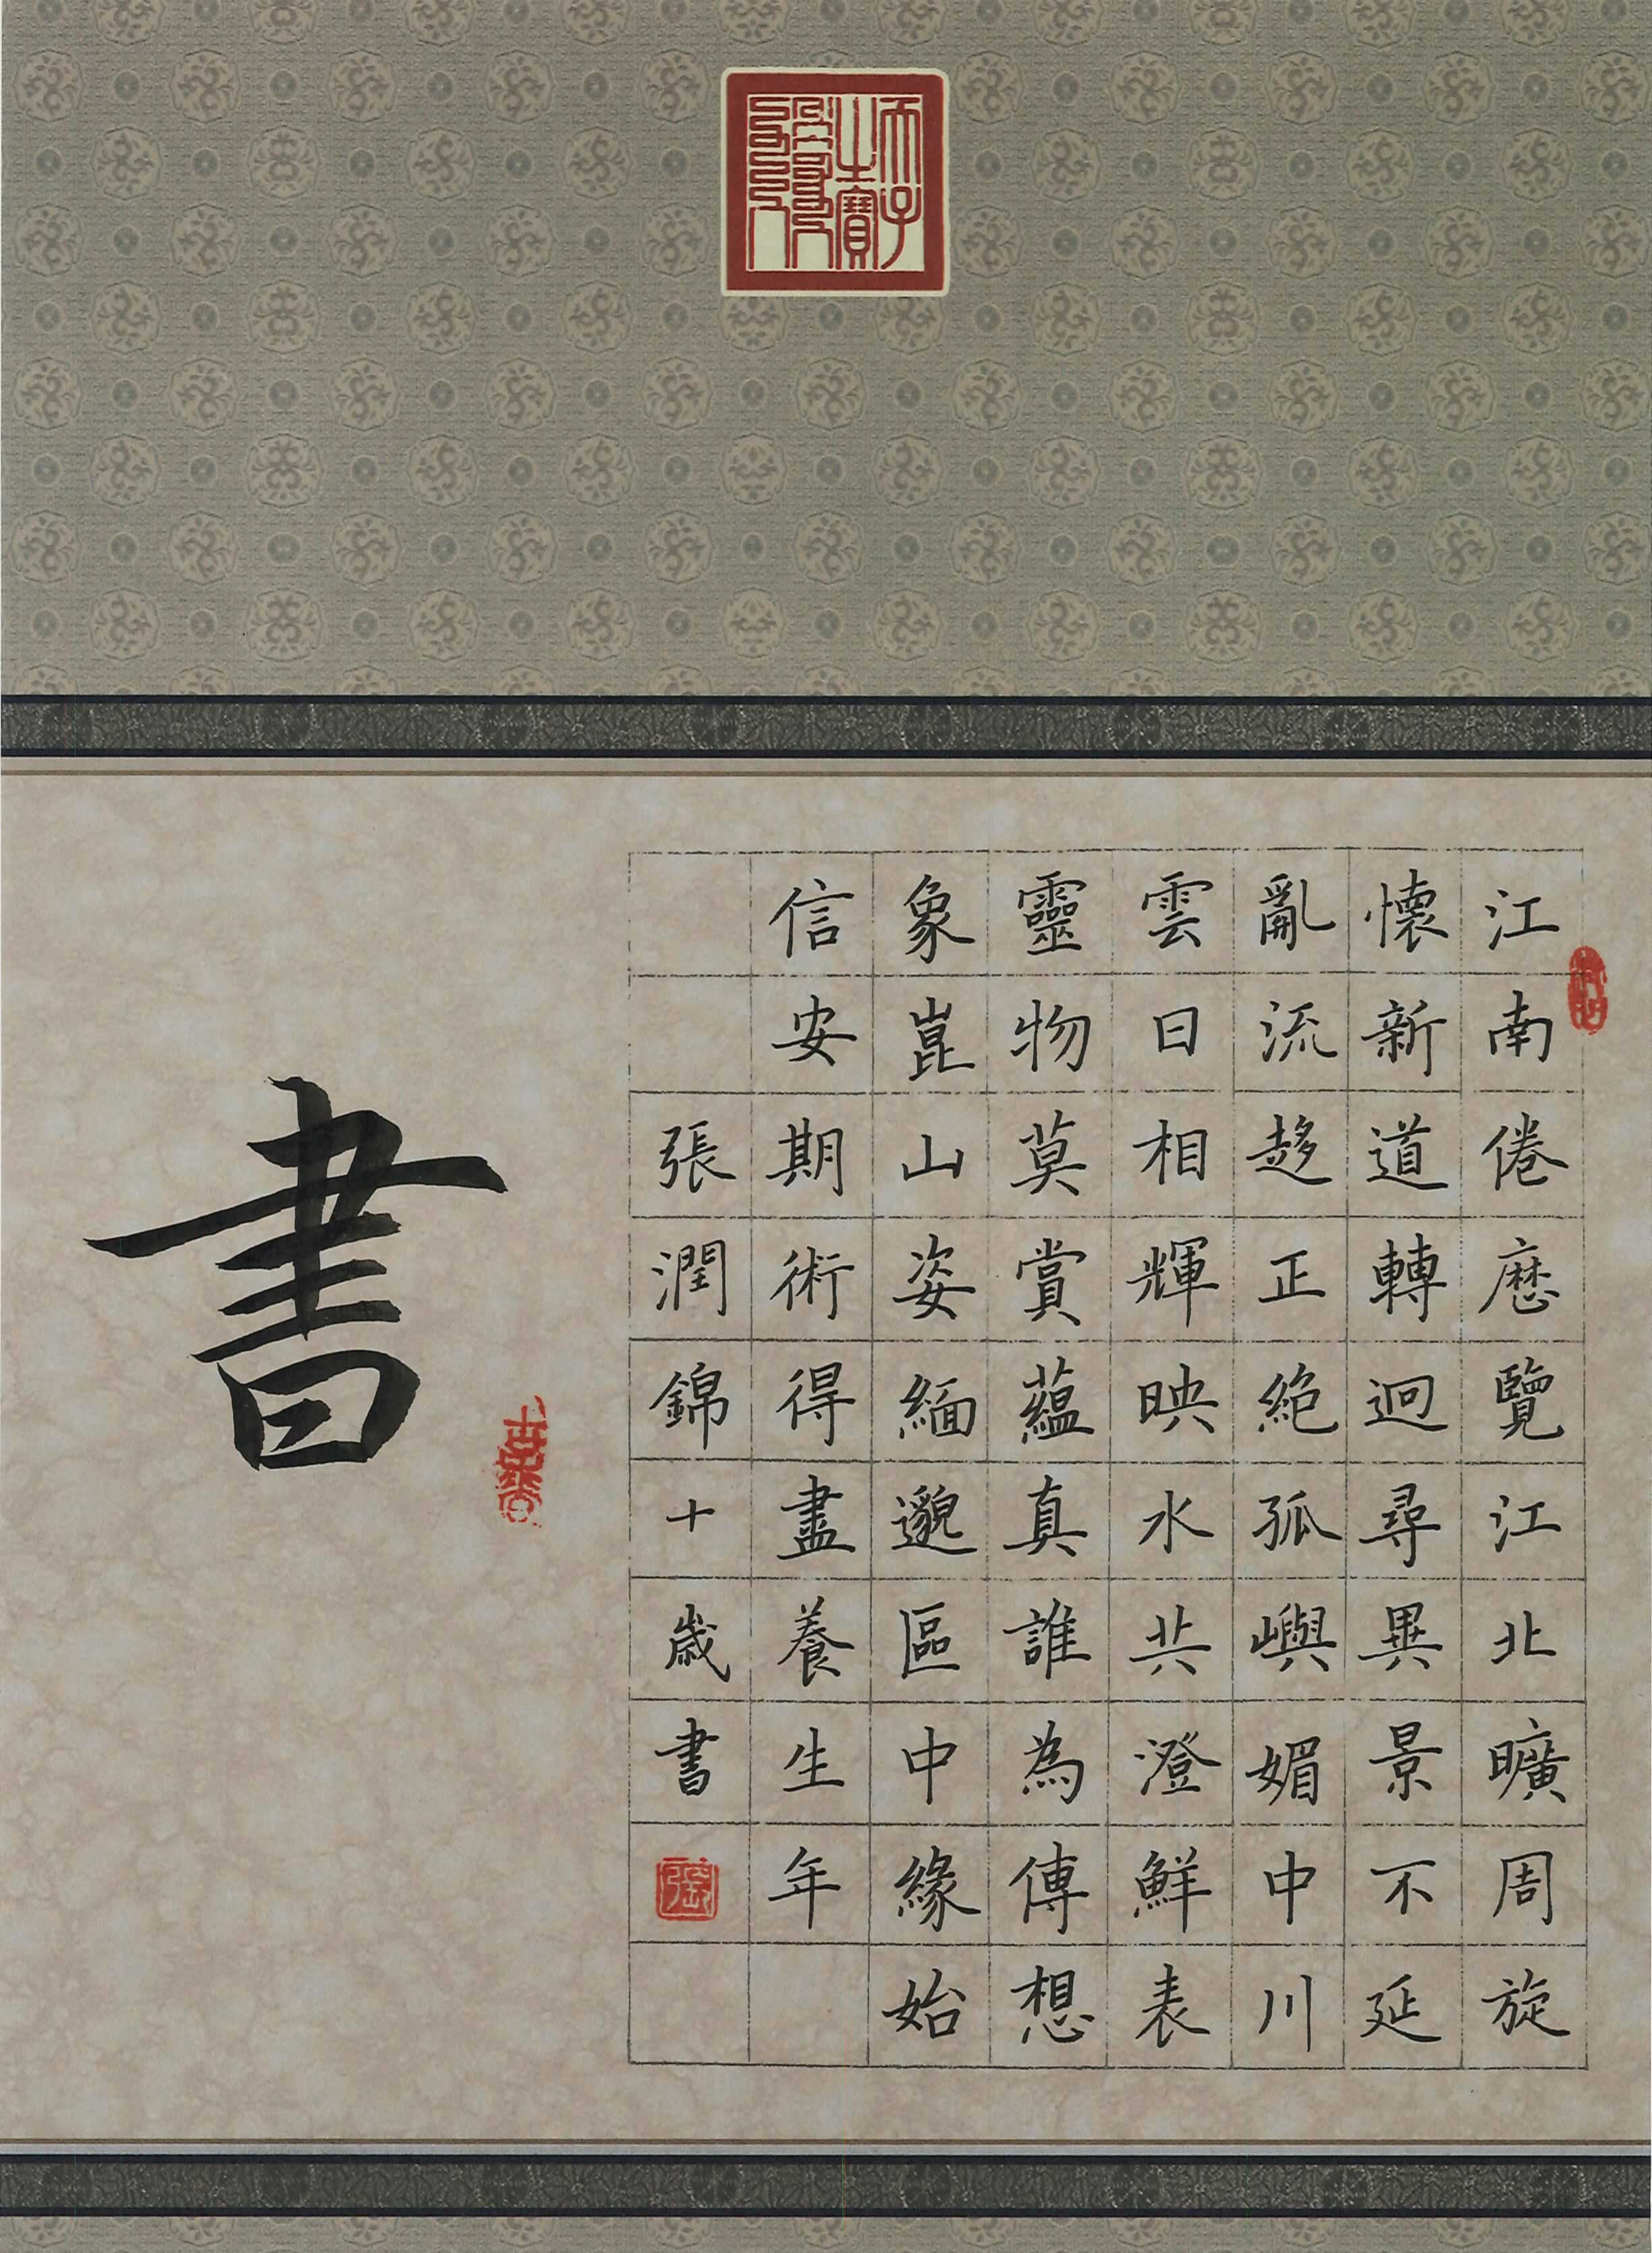 天子之寶
江南倦歷覽江北曠周旋
懷新道轉迥尋異景不延
亂流趨正絕孤嶼媚中川
雲日相輝映水共澄鮮表
靈物莫賞蘊真誰為傳想
象崑山姿緬邈區中緣始
信安期術得盡養生年
張潤錦十歲書
張
書